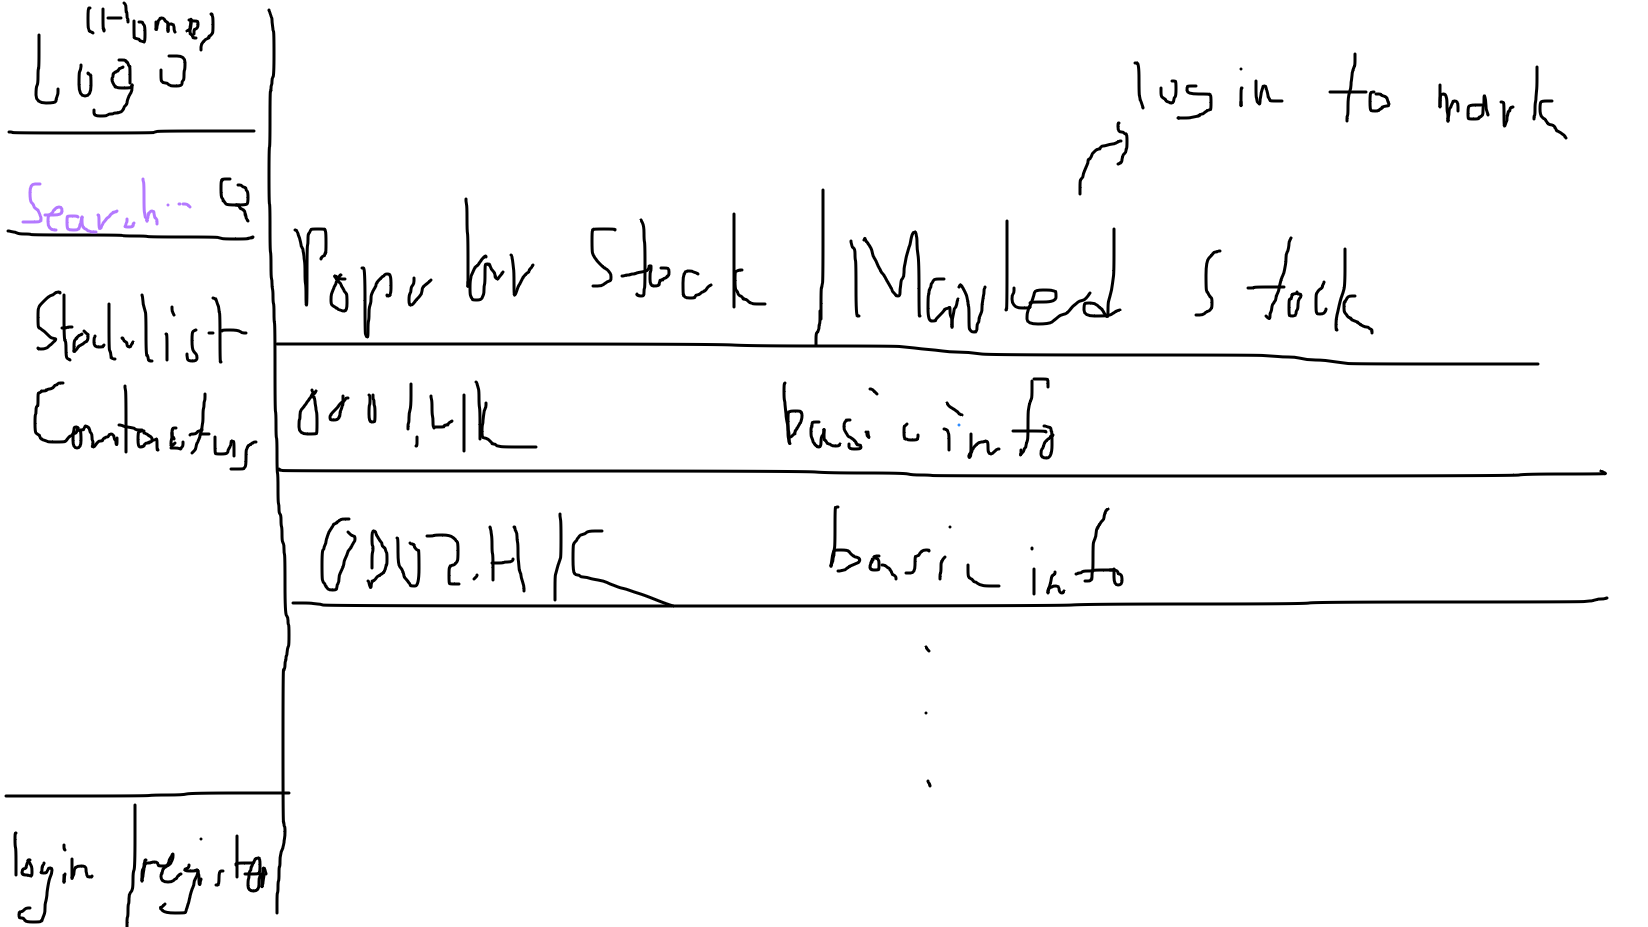 (Home)
Logo
Search...
Stocklist
Contact us
login | register
log in to mark
Popular Stock | Marked Stock
0001.HK basic info
0002.HK basic info